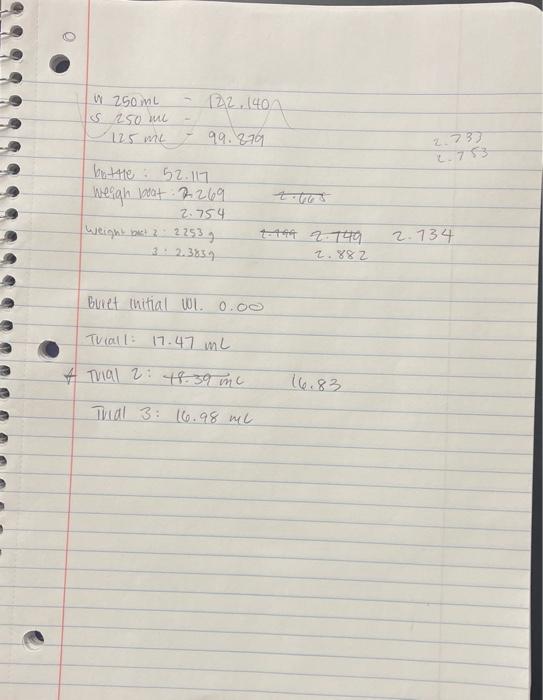 W 250 mL - 122.140
S 250 mL -
125 mL - 99.879
2.733
2.753
bottle : 52.117
weigh boat : 2.269 2.665
2.754
weight boat 2 : 2.253 g 2.799 2.749 2.734
3 : 2.383 g 2.882
Buret initial Vol. 0.00
Trial 1: 17.47 mL
Trial 2: 18.39 mL 16.83
Trial 3: 16.98 mL